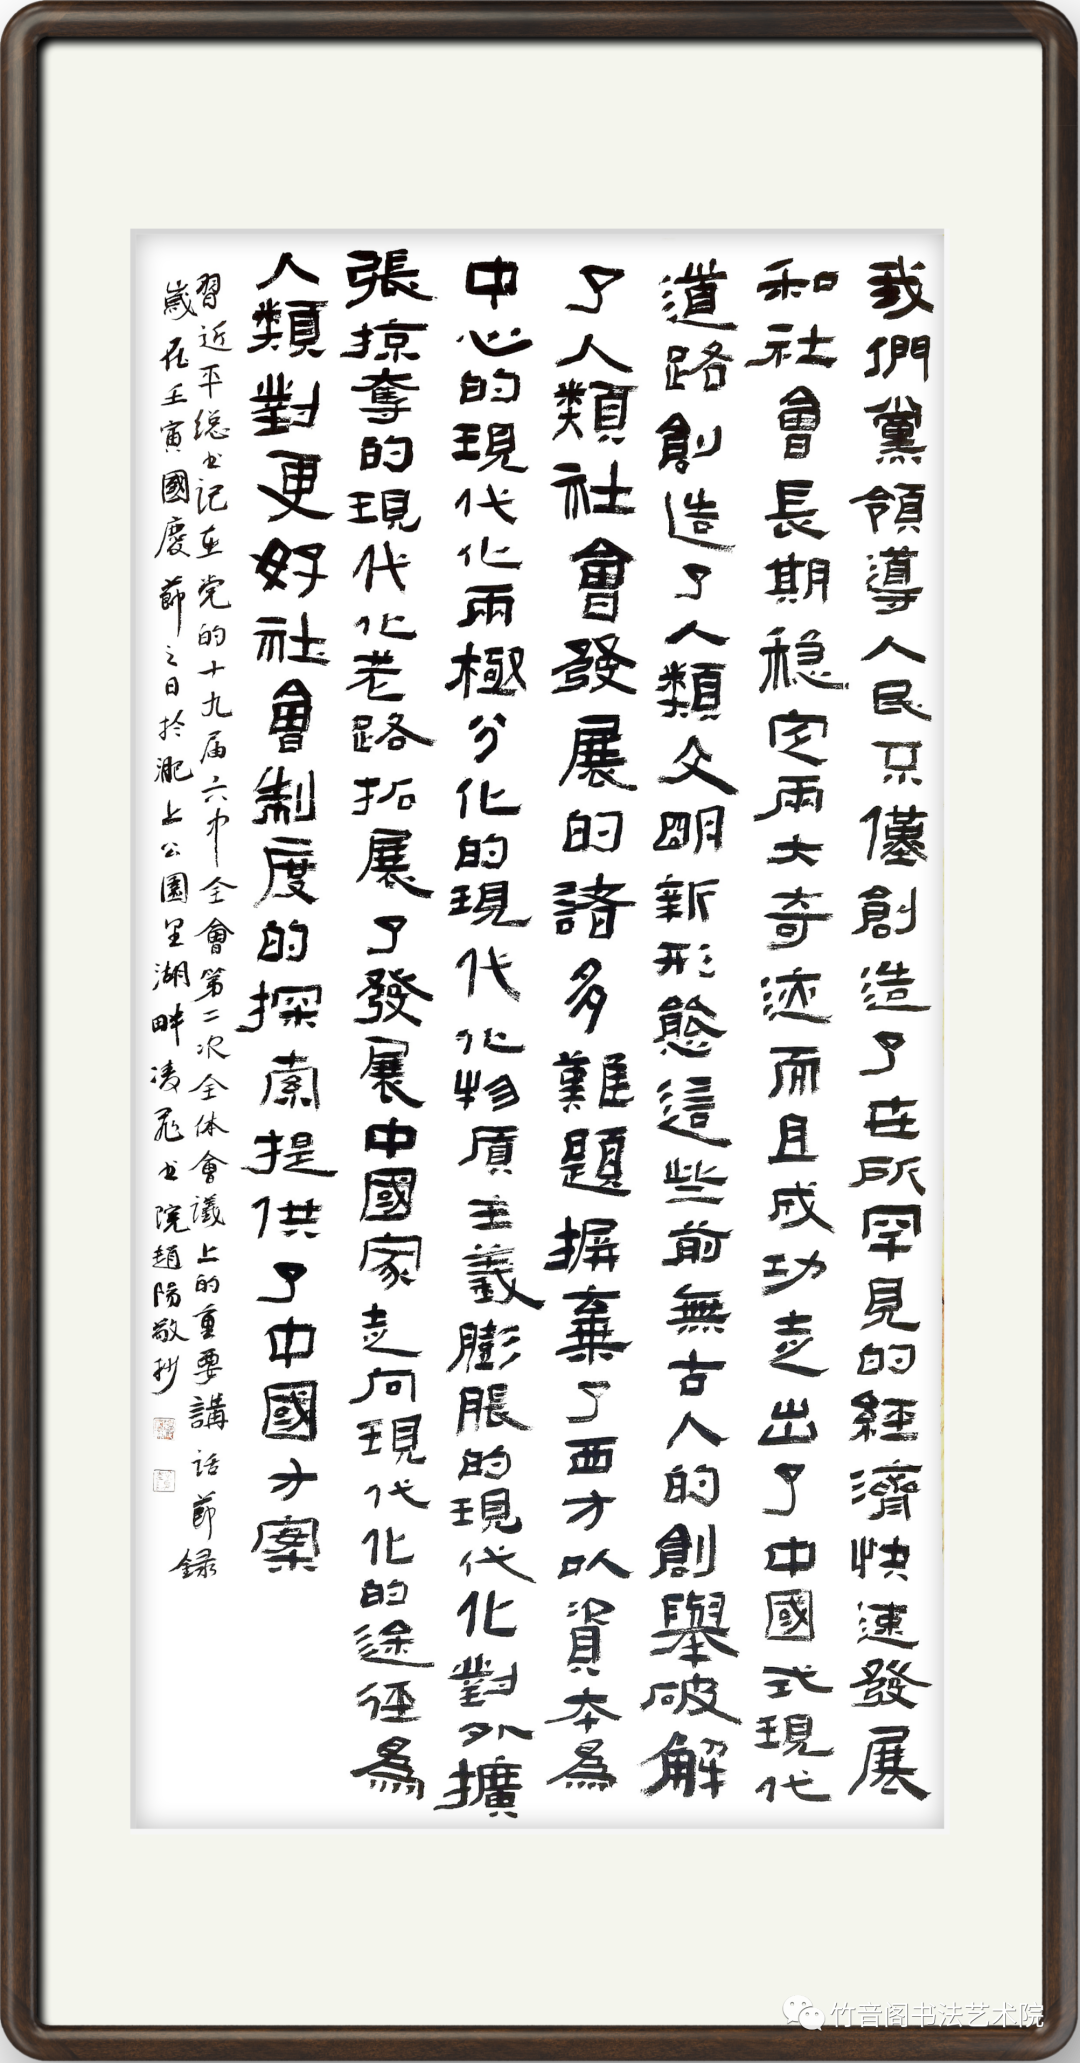 我們黨領導人民不僅創造了世所罕見的經濟快速發展
和社會長期穏定兩大奇迹而且成功走出了中國式現代
道路創造了人類文明新形態這些前無古人的創舉破解
了人類社會發展的諸多難題摒棄了西方以資本為
中心的現代化兩極分化的現代化物質主義膨脹的現代化對外擴
張掠奪的現代化老路拓展了發展中國家走向現代化的途徑為
人類對更好社會制度的探索提供了中國方案
習近平總书記在党的十九届六中全會第二次全体會議上的重要講話節録
歲在壬寅國慶節之日於淝上公園里湖畔凌飛书院趙陽敬抄
竹音阁书法艺术院